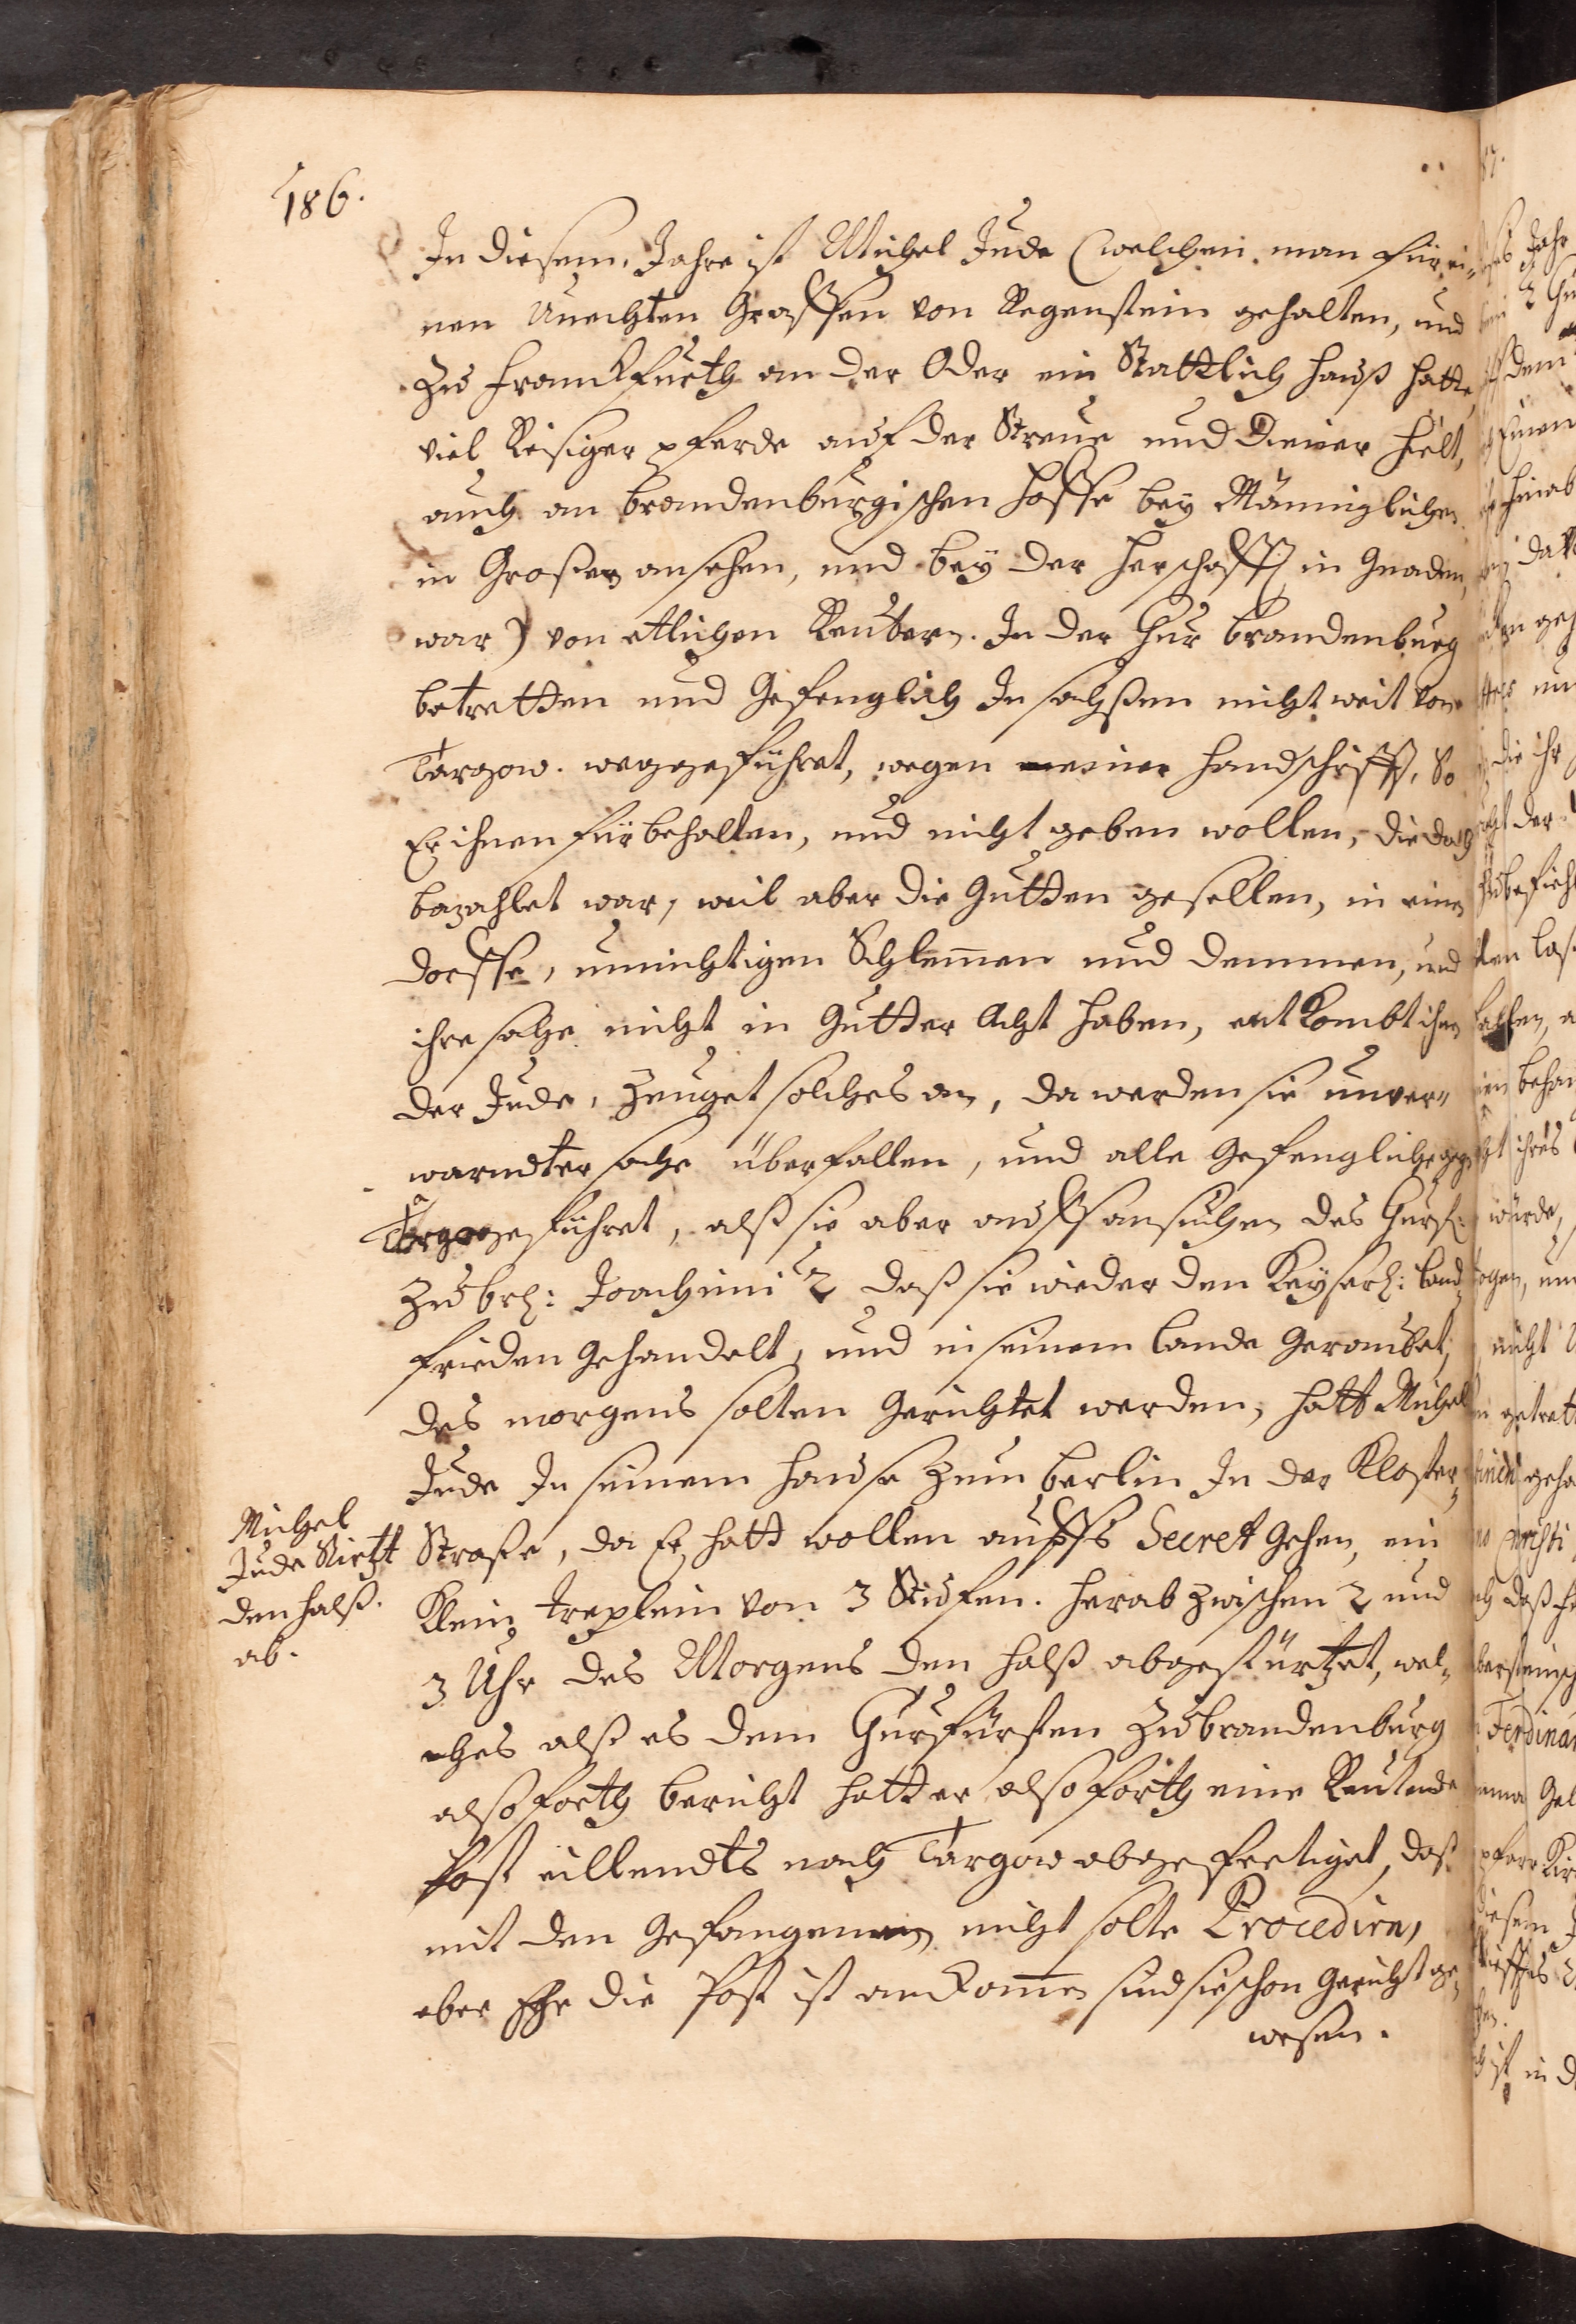 186.
In diesem Jahre ist Michel Jude (welchen man für ei-
nen Unechten Graffen von Regenstein gehalten, und
zu Franckfurth an der Oder ein Stattlich hauß hatte,
viel Reisiger pferde auf der Streue und Diener hielt,
auch an brandenburgischen Hoffe bey Männiglichen
in Großen ansehen, und bey der Herschafft in Gnaden
war) von etlichen Reutern. In der Chur brandenburg
betretten und Gefenglich In sachßen nicht weit von
Targow. weggeführet, wegen meiner handschrifft, So
Er ihnen fürbehalten, und nicht geben wollen, die doch
bezahlet war, weil aber die Gutten gesellen, in einen
dorffe, unichtigen Schlemmen und demmen, und
ihre sache nicht in Gutter Acht haben, entkombt ihnen
der Jude, Zeuget solches an, da werden sie unver-
warndter sache überfallen, und alle Gefenglich gegen
Targo geführet, alß sie aber auff ansuchen des Churf:
zu br: Joachimi 2 daß sie wieder den Keyserl: land
frieden Gehandelt, und in seinem lande Geraubet,
des morgens solten Gerichtet werden, hatt Michel
Jude In seinem hause zum berlin In der Kloster-
Straße, da Er hatt wollen auffs Secret Gehen, ein
Klein treplein von 3 Stufen. herab zwischen 2 und
3 Uhr des Morgens den halß abgestürtzet, wel-
ches alß es dem Churfürsten zu brandenburg
also forth bericht hatt er also forth eine Reutende
Post eillendts nach Targow abgefertiget, daß
mit den Gefangenen nicht solte Procediren,
aber Ehe die Post ist ankommen sind sie schon Gericht ge-
wesen.
Michel
Jude Stirtzt
den halß.
ab.